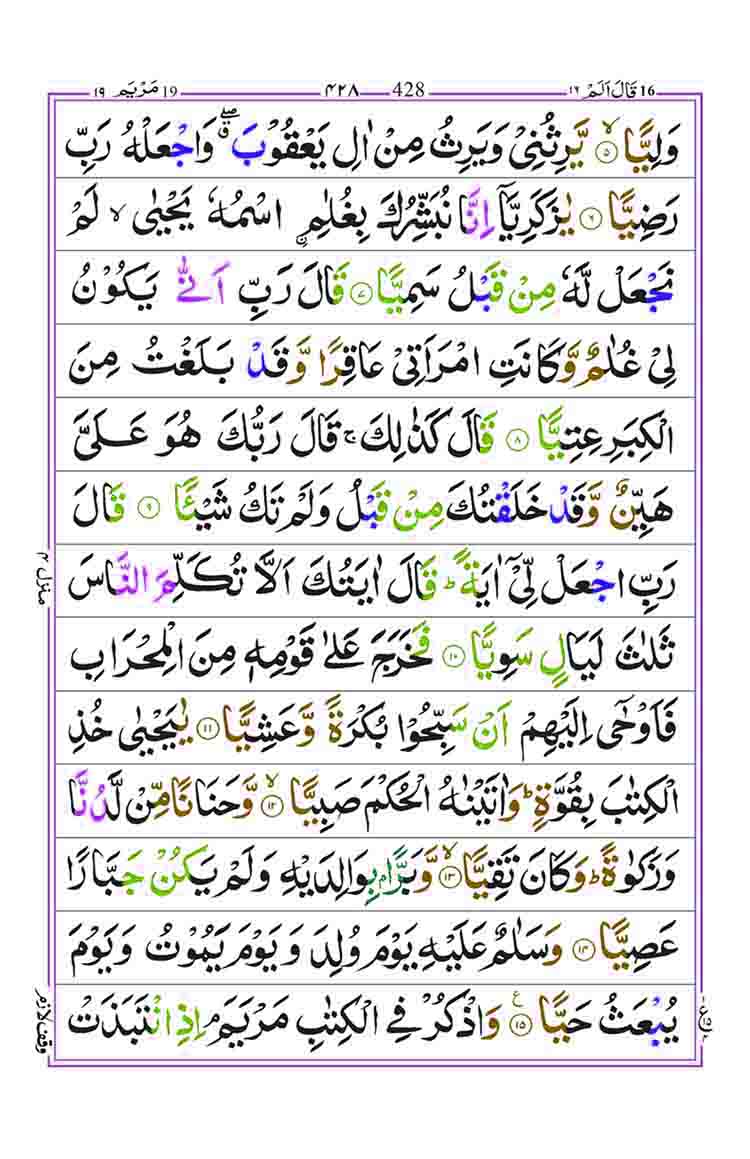 19 مَرْيَم ١٩ ٤٢٨ 428 16 قَالَ اَلَمْ ١٦
وَلِيًّا ۙ‏﴿۵﴾ يَّرِثُنِىْ وَيَرِثُ مِنْ اٰلِ يَعْقُوْبَ ۖۗ وَاجْعَلْهُ رَبِّ
رَضِيًّا ‏﴿۶﴾ يٰزَكَرِيَّاۤ اِنَّا نُبَشِّرُكَ بِغُلٰمِ ۨ اسْمُهٗ يَحْيٰى ۙ لَمْ
نَجْعَلْ لَّهٗ مِنْ قَبْلُ سَمِيًّا ‏﴿۷﴾ قَالَ رَبِّ اَنّٰى يَكُوْنُ
لِىْ غُلٰمٌ وَّكَانَتِ امْرَاَتِىْ عَاقِرًا وَّقَدْ بَلَغْتُ مِنَ
الْكِبَرِ عِتِيًّا ‏﴿۸﴾ قَالَ كَذٰلِكَ‌ ۚ قَالَ رَبُّكَ هُوَ عَلَىَّ
هَيِّنٌ وَّقَدْ خَلَقْتُكَ مِنْ قَبْلُ وَلَمْ تَكُ شَيْئًا ‏﴿۹﴾ قَالَ
رَبِّ اجْعَلْ لِّىْۤ اٰيَةً‌ ؕ قَالَ اٰيَتُكَ اَلَّا تُكَلِّمَ النَّاسَ
ثَلٰثَ لَيَالٍ سَوِيًّا ‏﴿۱۰﴾ فَخَرَجَ عَلٰى قَوْمِهٖ مِنَ الْمِحْرَابِ
فَاَوْحٰٓى اِلَيْهِمْ اَنْ سَبِّحُوْا بُكْرَةً وَّعَشِيًّا ‏﴿۱۱﴾ يٰيَحْيٰى خُذِ
الْكِتٰبَ بِقُوَّةٍ‌ ؕ وَاٰتَيْنٰهُ الْحُكْمَ صَبِيًّا ۙ‏﴿۱۲﴾ وَّحَنَانًا مِّنْ لَّدُنَّا
وَزَكٰوةً‌ ؕ وَكَانَ تَقِيًّا ۙ‏﴿۱۳﴾ وَّبَرًّۢا بِوَالِدَيْهِ وَلَمْ يَكُنْ جَبَّارًا
عَصِيًّا ‏﴿۱۴﴾ وَسَلٰمٌ عَلَيْهِ يَوْمَ وُلِدَ وَيَوْمَ يَمُوْتُ وَيَوْمَ
يُبْعَثُ حَيًّا ‏﴿۱۵﴾ ع وَاذْكُرْ فِى الْكِتٰبِ مَرْيَمَ‌ ۘ اِذِ انْتَبَذَتْ
منزل ۴
وقف لازم